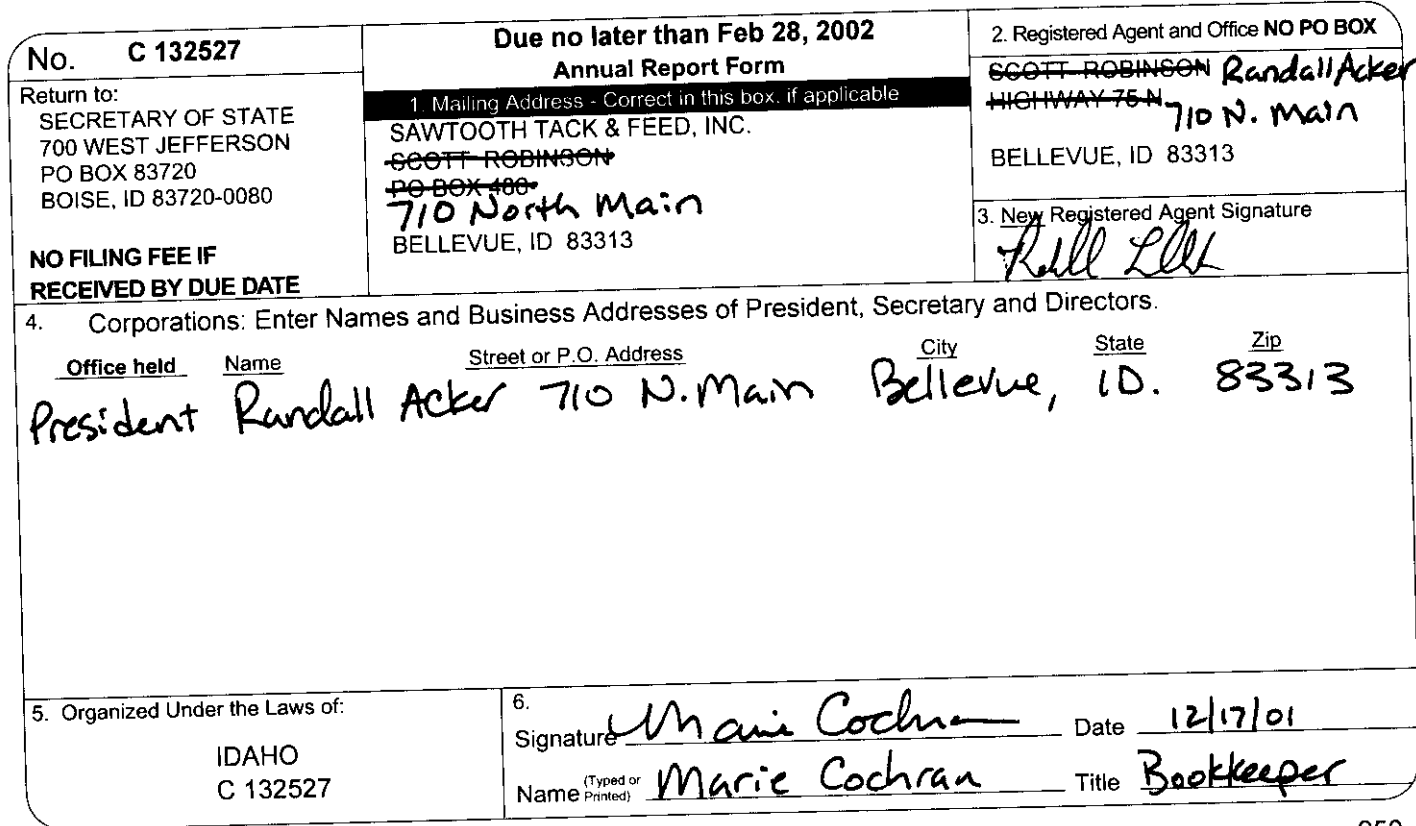 No. C 132527
Return to:
SECRETARY OF STATE
700 WEST JEFFERSON
PO BOX 83720
BOISE, ID 83720-0080
NO FILING FEE IF
RECEIVED BY DUE DATE
Due no later than Feb 28, 2002
Annual Report Form
1. Mailing Address - Correct in this box, if applicable
SAWTOOTH TACK & FEED, INC.
SCOTT ROBINSON
PO BOX 480
710 North Main
BELLEVUE, ID 83313
2. Registered Agent and Office NO PO BOX
SCOTT ROBINSON Randall Acker
HIGHWAY 75 N
710 N. Main
BELLEVUE, ID 83313
3. New Registered Agent Signature
4. Corporations: Enter Names and Business Addresses of President, Secretary and Directors.
Office held Name Street or P.O. Address City State Zip
President Randall Acker 710 N. Main Bellevue, ID. 83313
5. Organized Under the Laws of:
IDAHO
C 132527
6.
Signature Marie Cochran Date 12/17/01
Name (Typed or Printed) Marie Cochran Title Bookkeeper